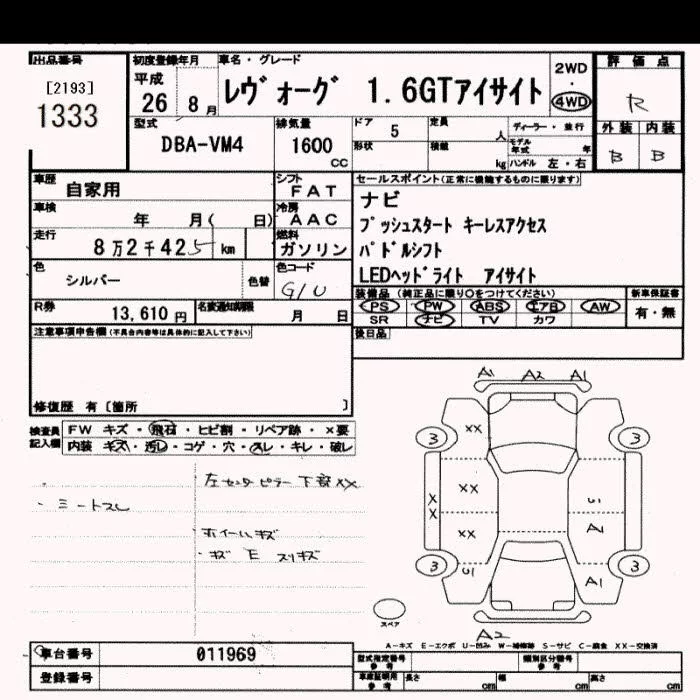 出品番号
[2193]
1333
初度登録年月
平成
26 8 月
車名・グレード
レヴォーグ 1.6GTアイサイト
2WD
・
4WD
評価点
R
外装 内装
B B
型式
DBA-VM4
排気量
1600
cc
ドア 5
形状
定員 人
積載 kg
ディーラー・並行
モデル年式 年
ハンドル 左・右
車歴 自家用
シフト FAT
車検 年 月( 日)
冷房 AAC
走行 8万2千425 km
燃料 ガソリン
色 シルバー
色替
色コード G1U
R券 13,610 円
名変通知期限 月 日
セールスポイント(正常に機能するものに限ります)
ナビ
プッシュスタート キーレスアクセス
パドルシフト
LEDヘッドライト アイサイト
装備品 (純正品に限り○をつけてください)
PS PW ABS エアB AW
SR ナビ TV カワ
新車保証書
有・無
後日品
注意事項申告欄(不具合内容等は具体的に記入して下さい)
修復歴 有〔箇所 〕
検査員記入欄
FW キズ・飛石・ヒビ割・リペア跡・×要
内装 キズ・汚レ・コゲ・穴・スレ・キレ・破レ
左センターピラー下部XX
・シートスレ
ホイールキズ
・キズ E スリキズ
A1 A2 A1
3 XX 3
XX
XX
XX U1
XX A1
3 U1 A1 3
スペア
A2
A-キズ E-エクボ U-凹み W-補修跡 S-サビ C-腐食 XX-交換済
車台番号 011969
登録番号
型式指定番号 参考
類別区分番号 参考
車庫証明用 参考
長さ cm
幅 cm
高さ cm